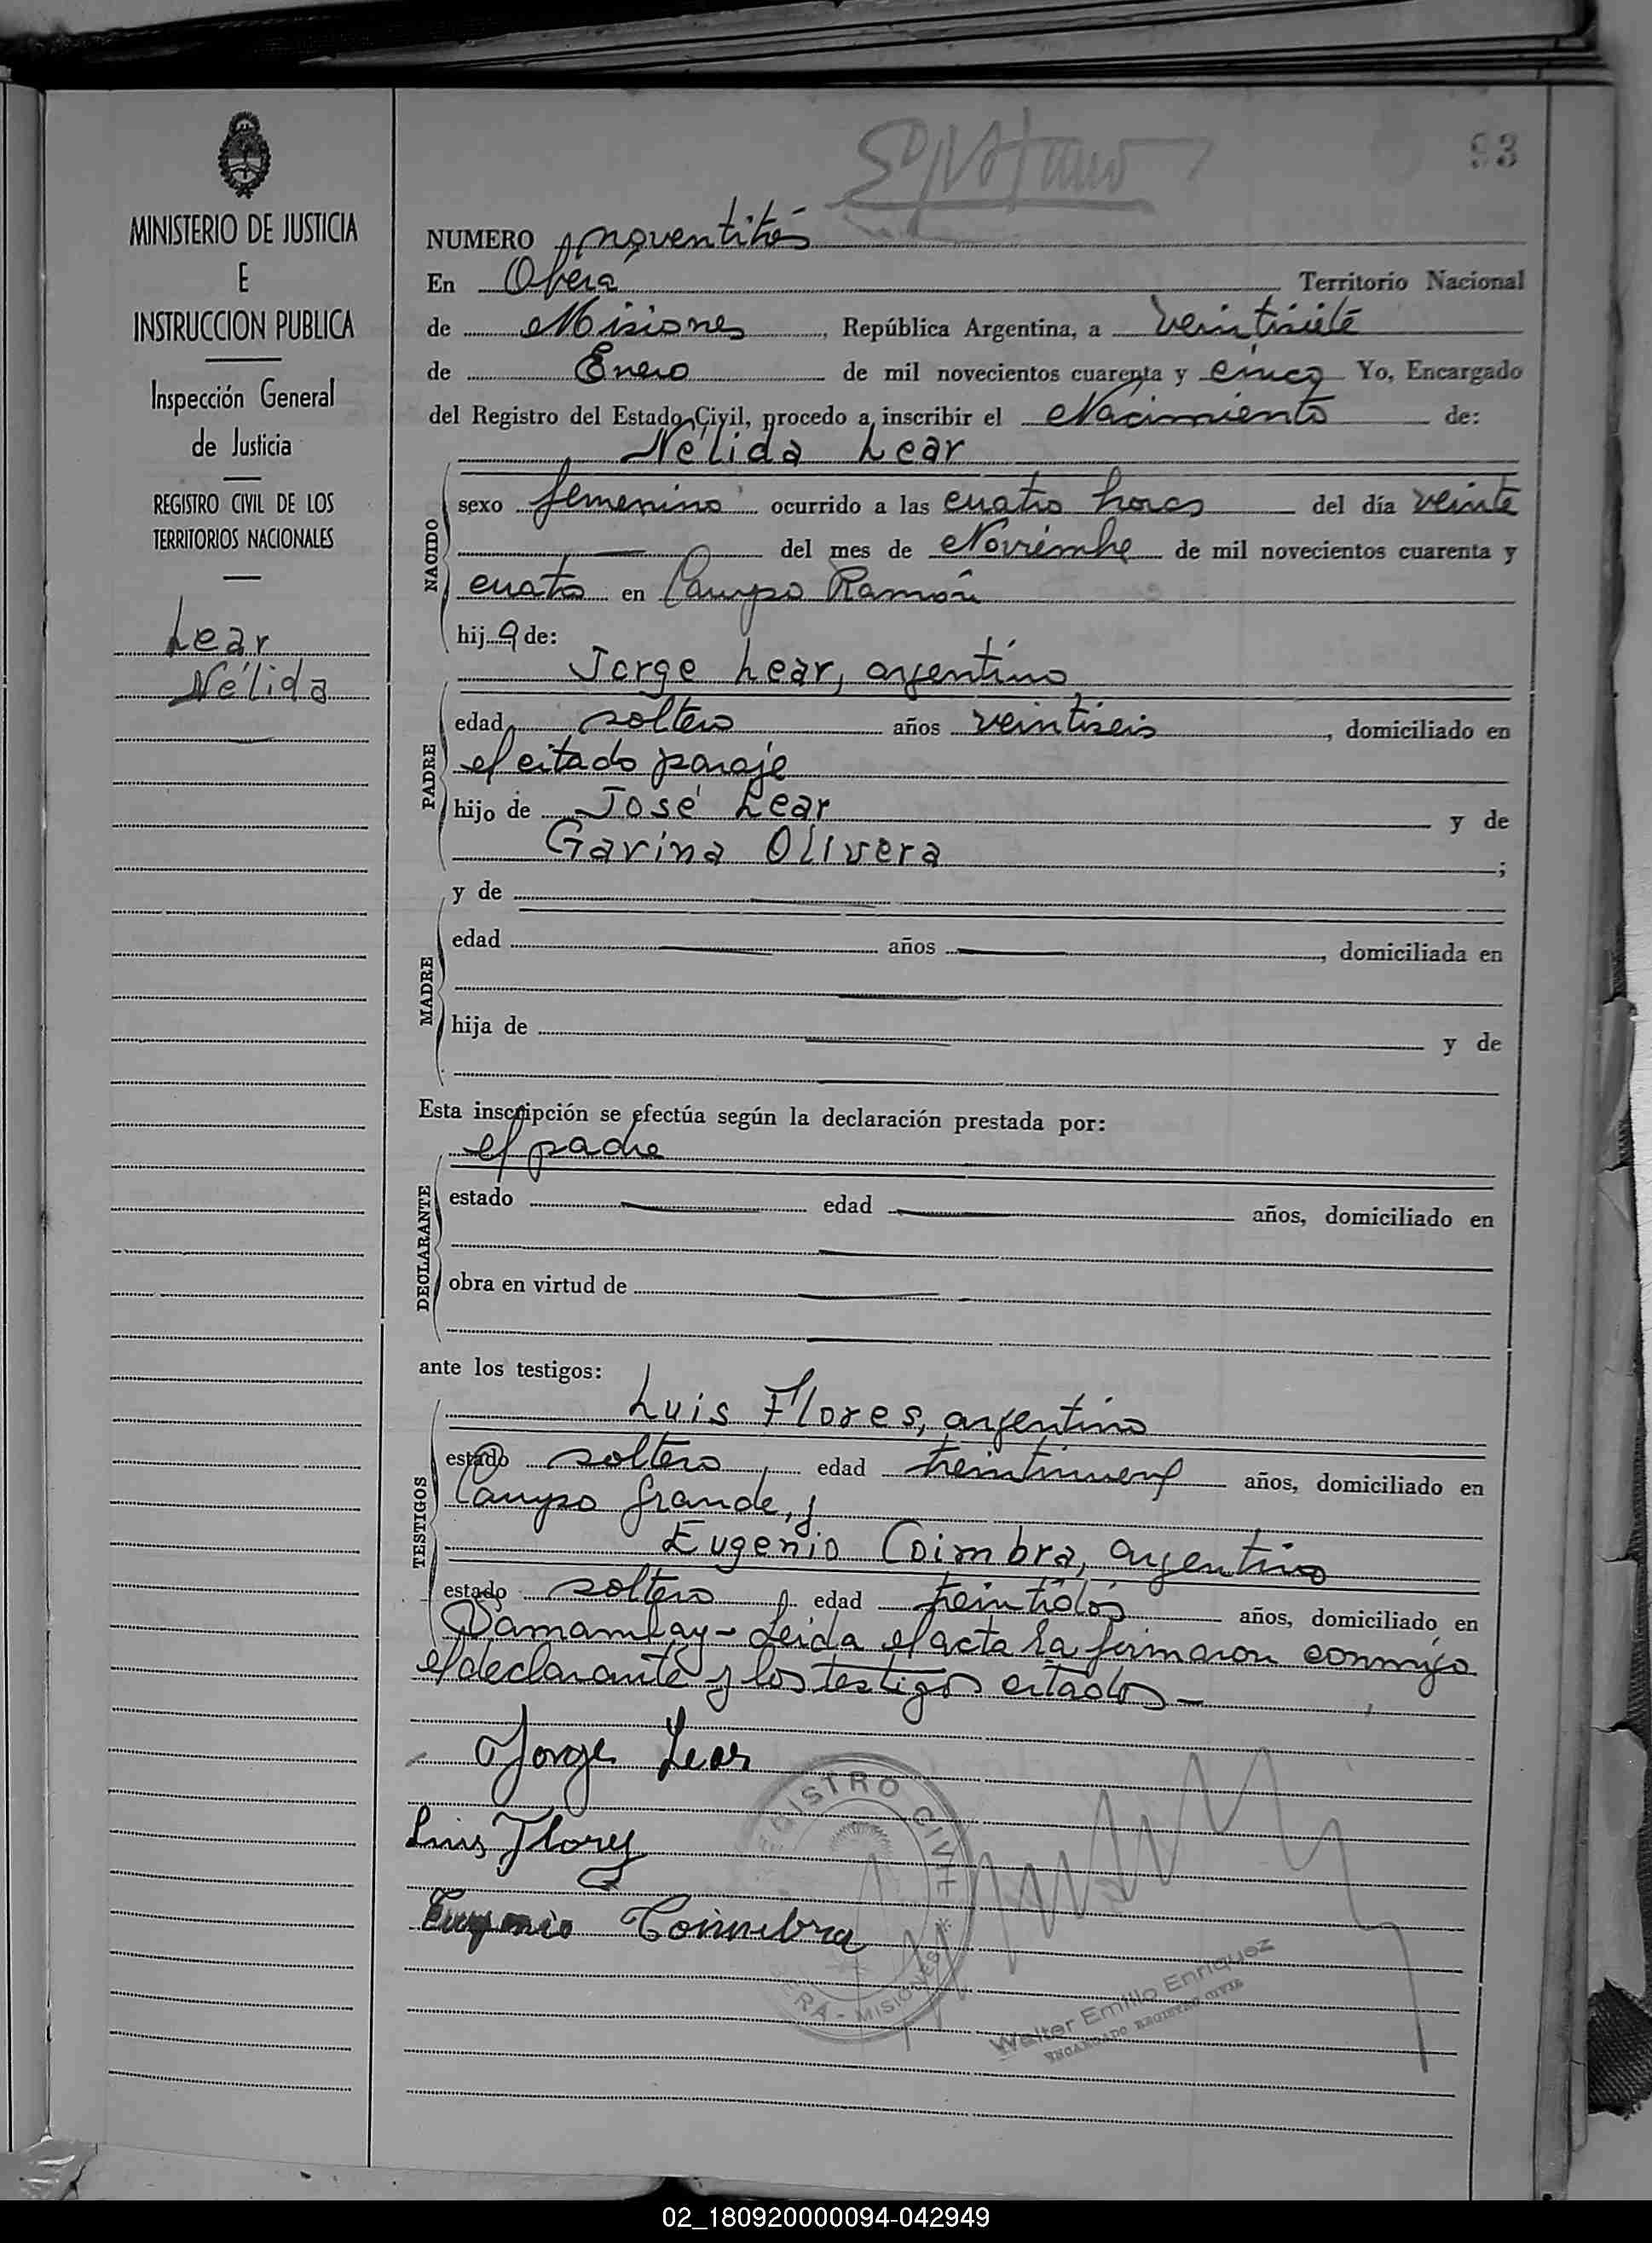 93
MINISTERIO DE JUSTICIA
E
INSTRUCCION PUBLICA
Inspección General
de Justicia
REGISTRO CIVIL DE LOS
TERRITORIOS NACIONALES
Lear
Nélida
NUMERO noventitrés
En Oberá Territorio Nacional
de Misiones, República Argentina, a veintisiete
de Enero de mil novecientos cuarenta y cinco Yo, Encargado
del Registro del Estado Civil, procedo a inscribir el Nacimiento de:
Nélida Lear
NACIDO
sexo femenino ocurrido a las cuatro horas del día veinte
del mes de Noviembre de mil novecientos cuarenta y
cuatro en Campo Ramón
hija de:
Jorge Lear, argentino
PADRE
edad soltero años veintiseis, domiciliado en
el citado paraje
hijo de José Lear y de
Garina Olivera;
y de
MADRE
edad años, domiciliada en
hija de y de
Esta inscripción se efectúa según la declaración prestada por:
el padre
DECLARANTE
estado edad años, domiciliado en
obra en virtud de
ante los testigos:
Luis Flores, argentino
TESTIGOS
estado soltero edad treintinueve años, domiciliado en
Campo Grande, y
Eugenio Coimbra, argentino
estado soltero edad treintidós años, domiciliado en
Leida el acta la firmaron conmigo
el declarante y los testigos citados -
Jorge Lear
Luis Flores
Eugenio Coimbra
REGISTRO CIVIL
OBERA - MISIONES
Walter Emilio Enriquez
ENCARGADO REGISTRO CIVIL
02_180920000094-042949